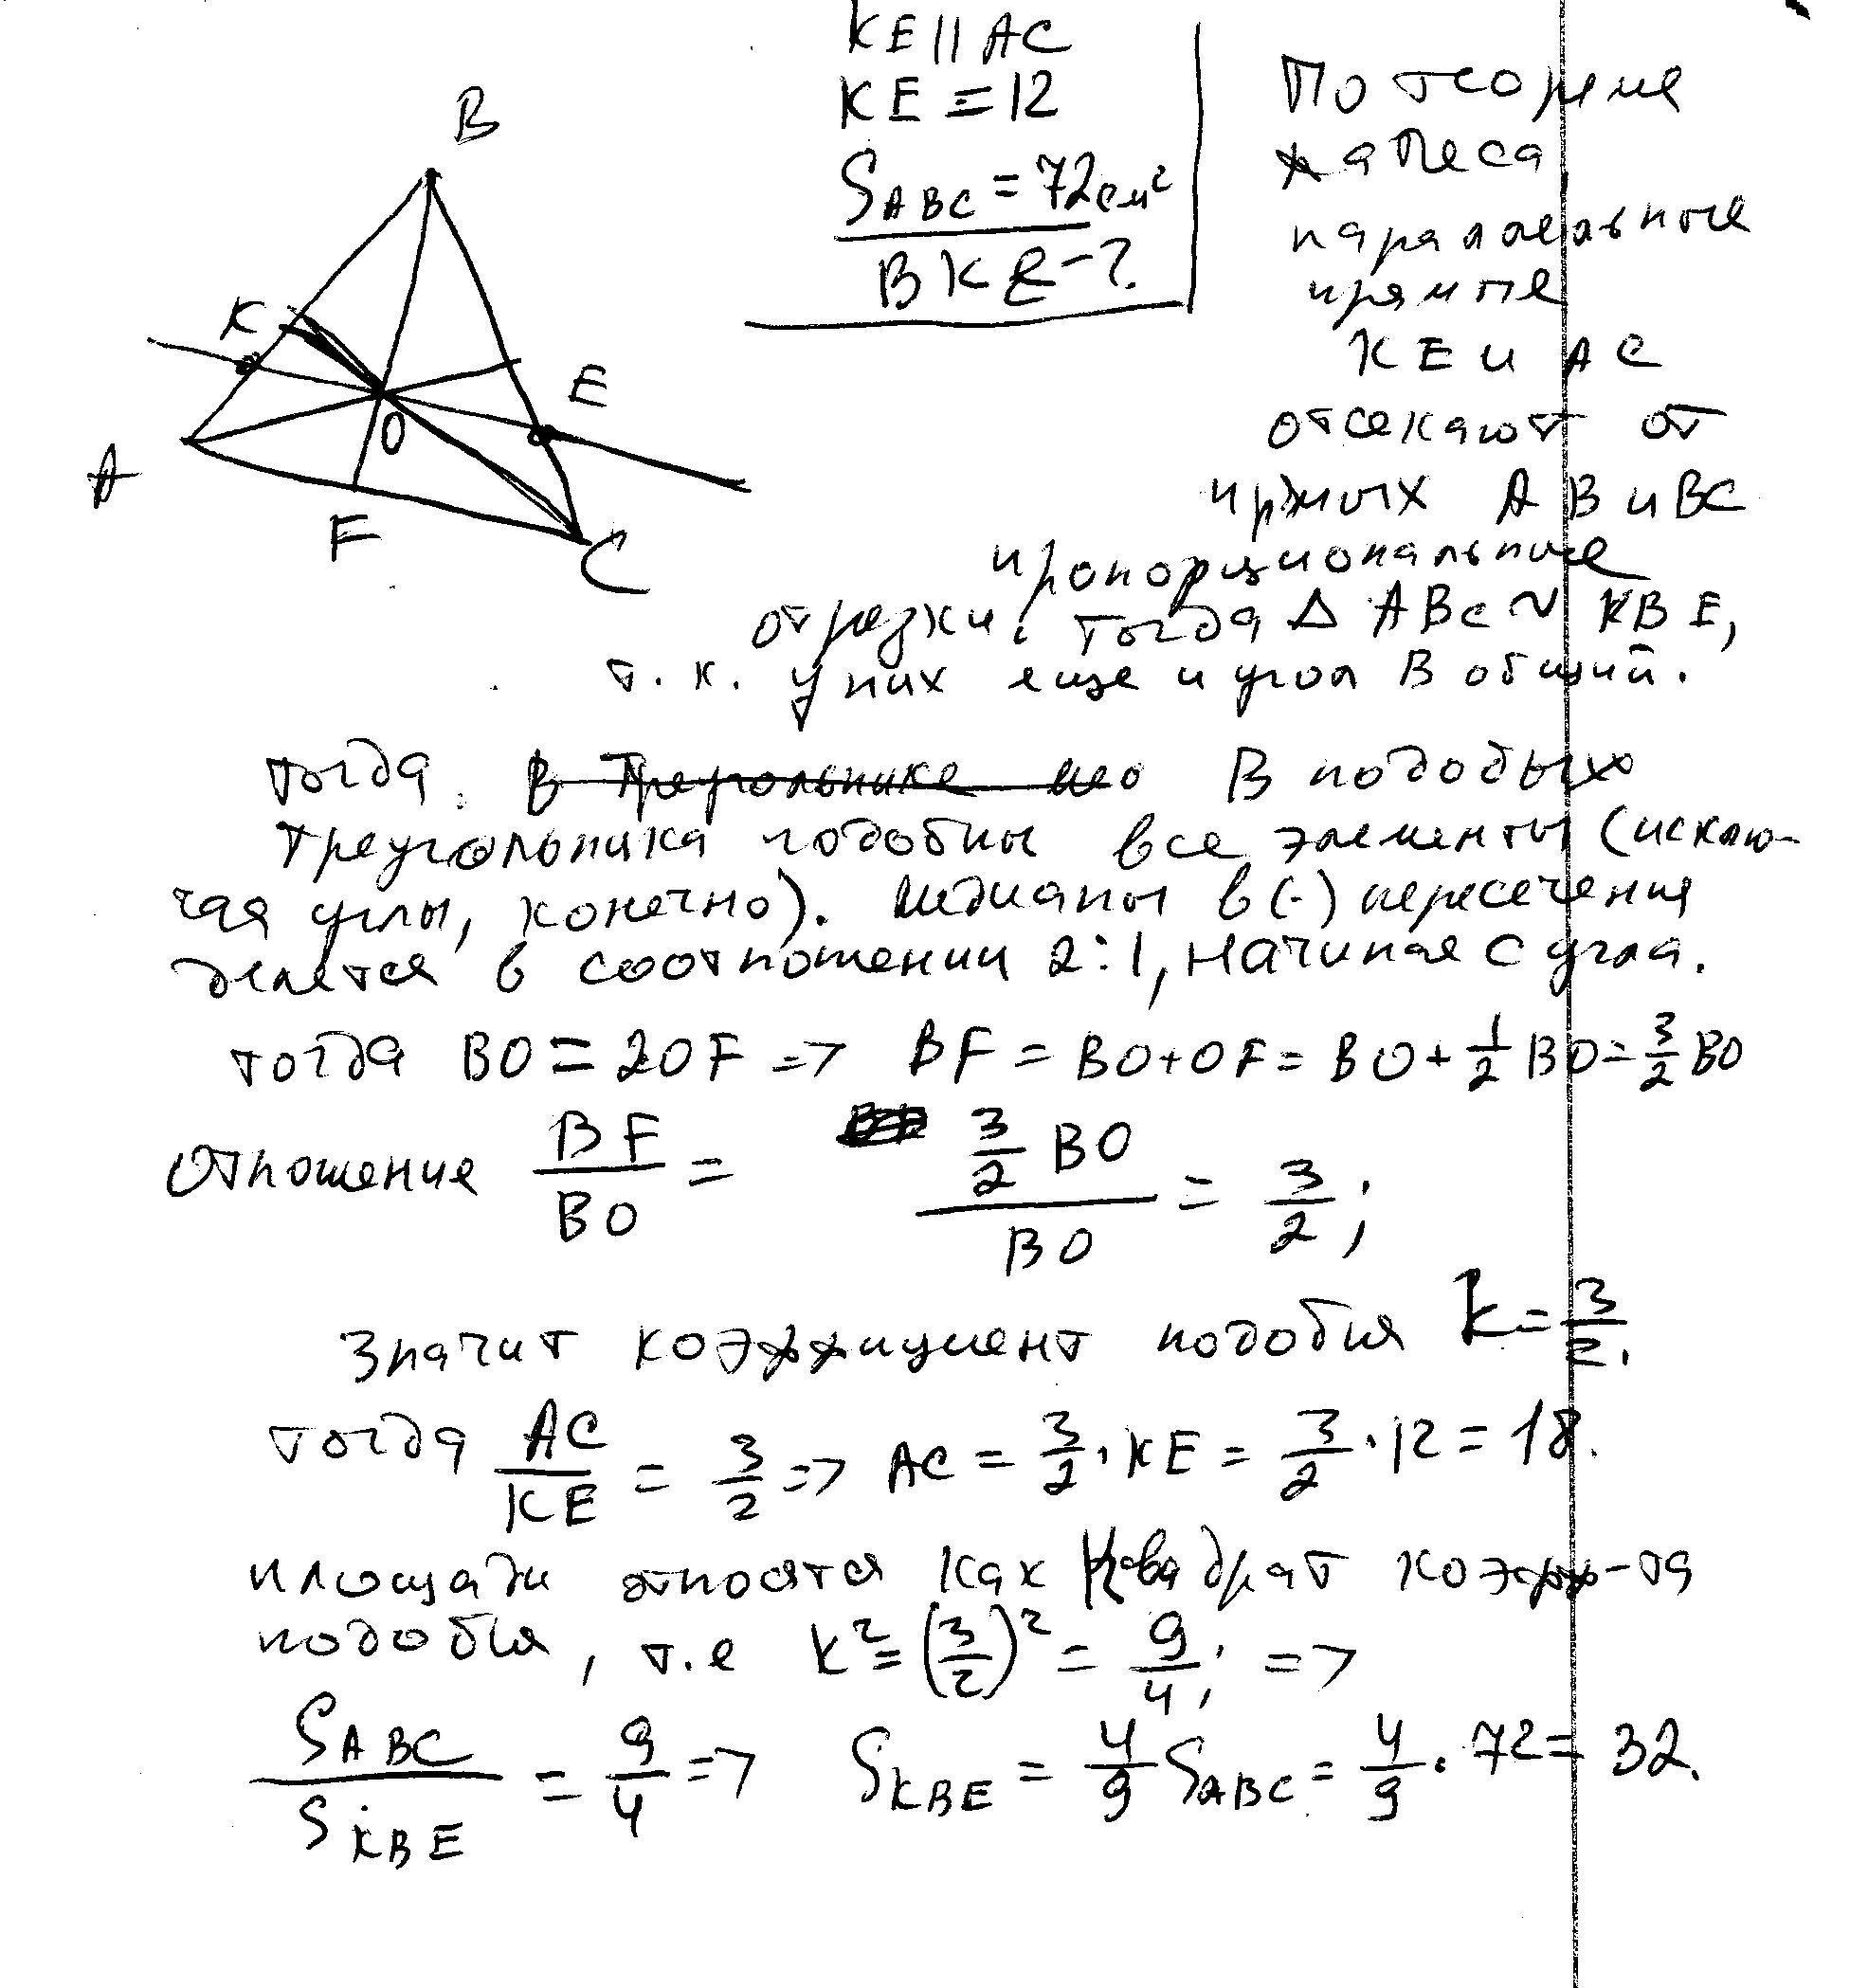 B
K
E
O
A
F
C
KE || AC
KE = 12
S ABC = 72 см²
BKE - ?
По теореме
Фалеса
параллельные
прямые
KE и AC
отсекают от
прямых AB и BC
пропорциональные
отрезки. тогда Δ ABC ~ KBE,
т.к. у них еще и угол B общий.
тогда. В треугольнике В подобых
треугольника подобны все элементы (исклю-
чая углы, конечно). Медианы в (·) пересечения
делятся в соотношении 2:1, начиная с угла.
тогда BO = 2OF => BF = BO + OF = BO + 1/2 BO = 3/2 BO
Отношение BF/BO = 3/2 BO / BO = 3/2 ;
Значит коэффициент подобия k = 3/2.
тогда AC/KE = 3/2 => AC = 3/2 · KE = 3/2 · 12 = 18.
площади относятся как квадрат коэфф-та
подобия, т.е k² = (3/2)² = 9/4 ; =>
S ABC / S KBE = 9/4 => S KBE = 4/9 S ABC = 4/9 · 72 = 32.